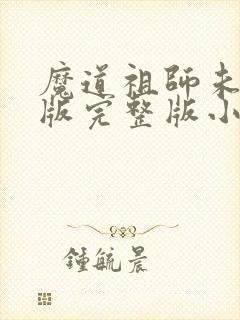 魔道祖師未
版完整版小
鍾毓晨